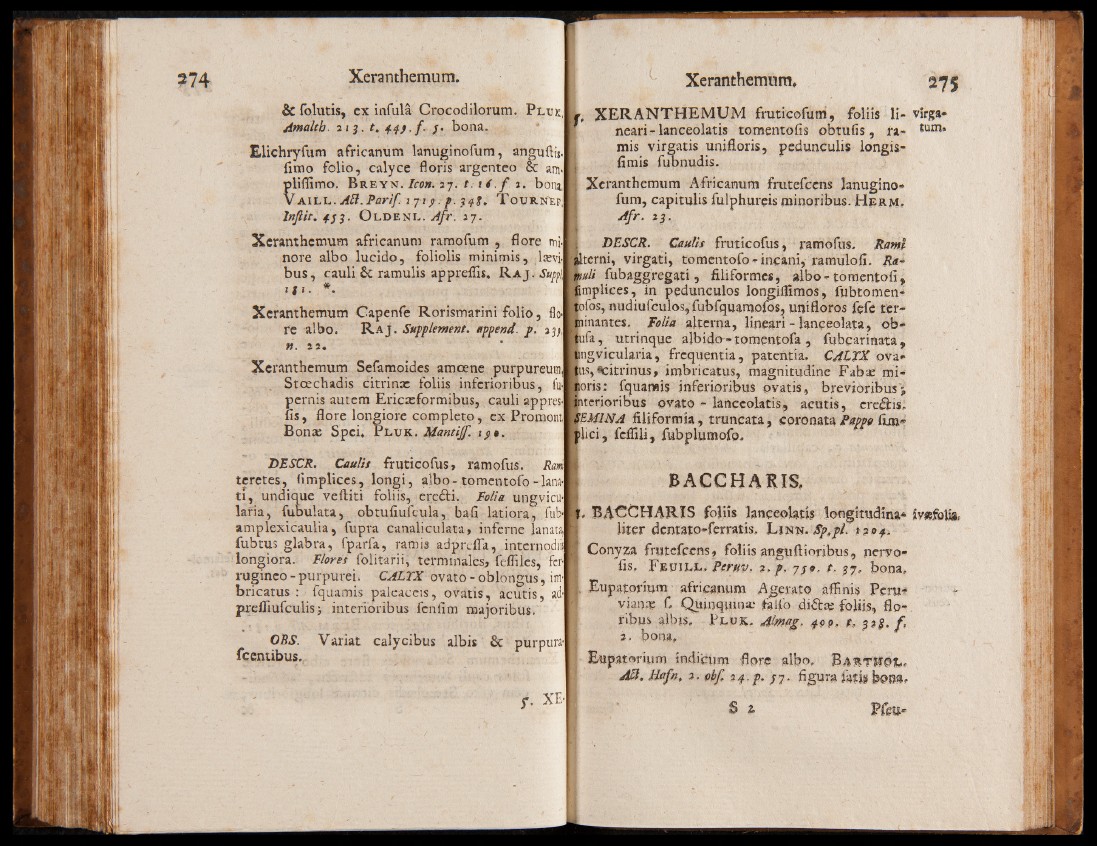 274 Xeranthemum.
& ſolutis, ex inſulâ Crocodilorum. PLUK.
Amalth. 213. t. 449. f. 5. bona.
Elichryſum africanum lanuginoſum, anguſtis-
ſimo folio, calyce floris argenteo & am-
pliſſimo. BREYN. Icon. 27. t. 16. f 2. bona
VAILL. Act. Pariſ. 1719. p. 348. TOURNEF.
Inſtit. 453. OLDENL. Afr. 27.
Xeranthemum africanum ramoſum , flore mi-
nore albo lucido, foliolis minimis, lævi-
bus, cauli & ramulis appreſſis. RAJ. Suppl.
181. *.
Xeranthemum Capenſe Rorismarini folio, flo-
re albo. RAJ. Supplement. append. p. 233.
n. 22.
Xeranthemum Seſamoides amœne purpureum,
Stœchadis citrinæ foliis inferioribus, ſu-
pernis autem Ericæformibus, cauli appres-
ſis, flore longiore completo, ex Promont.
Bonæ Spei. PLUK. Mantiſſ. 190.
DESCR. Caulis fruticoſus, ramoſus. Rami
teretes, ſimplices, longi, albo-tomentoſo-lana-
ti, undique veſtiti foliis, erecti. Folia ungvicu-
laria, ſubulata, obtuſiuſcula, baſi latiora, ſub-
amplexicaulia, ſupra canaliculata, inferne lanata,
ſubtus glabra, ſparſa, ramis adpreſſa, internodiis
longiora. Flores ſolitarii, terminales, ſeſſiles, fer-
rugineo-purpurei. CALYX ovato-oblongus, im-
bricatus : ſquamis paleaceis, ovatis, acutis, ad-
preſſiuſculis; interioribus ſenſim majoribus.
OBS. Variat calycibus albis & purpura-
ſcentibus.
5. XE-
Xeranthemum. 275
5. XERANTHEMUM fruticoſum, foliis li- virga-
neari-lanceolatis tomentoſis obtuſis, ra- tum.
mis virgatis unifloris, pedunculis longis-
ſimis ſubnudis.
Xeranthemum Africanum fruteſcens lanugino-
ſum, capitulis ſulphureis minoribus. HERM.
Afr. 23.
DESCR. Caulis fruticoſus, ramoſus. Rami
alterni, virgati, tomentoſo-incani, ramuloſi. Ra-
muli ſubaggregati, filiformes, albo-tomentoſi,
ſimplices, in pedunculos longiſſimos, ſubtomen-
toſos, nudiuſculos, ſubſquamoſos, unifloros ſeſe ter-
minantes. Folia alterna, lineari-lanceolata, ob-
tuſa, utrinque albido-tomentoſa, ſubcarinata,
ungvicularia, frequentia, patentia. CALYX ova-
tus, citrinus, imbricatus, magnitudine Fabæ mi-
noris: ſquamis inferioribus ovatis, brevioribus;
interioribus ovato - lanceolatis, acutis, erectis.
SEMINA filiformia, truncata, coronata Pappo ſim-
plici, ſeſſili, ſubplumoſo.
BACCHARIS.
1. BACCHARIS foliis lanceolatis longitudina- ivæfolia.
liter dentato-ſerratis. LINN. Sp. pl. 1204.
Conyza fruteſcens, foliis anguſtioribus, nervo-
ſis. FEUILL. Peruv. 2. p. 750. t. 37. bona.
Eupatorium africanum Agerato affinis Peru-
vianæ ſ. Quinquinæ falſo dictæ foliis, flo-
ribus albis. PLUK. Almag. 400. t. 328. f.
2. bona.
Eupatorium indicum flore albo. BARTHOL.
Act. Hafn. 2. obſ. 24. p. 57. figura ſatis bona.
S 2 Pſeu-